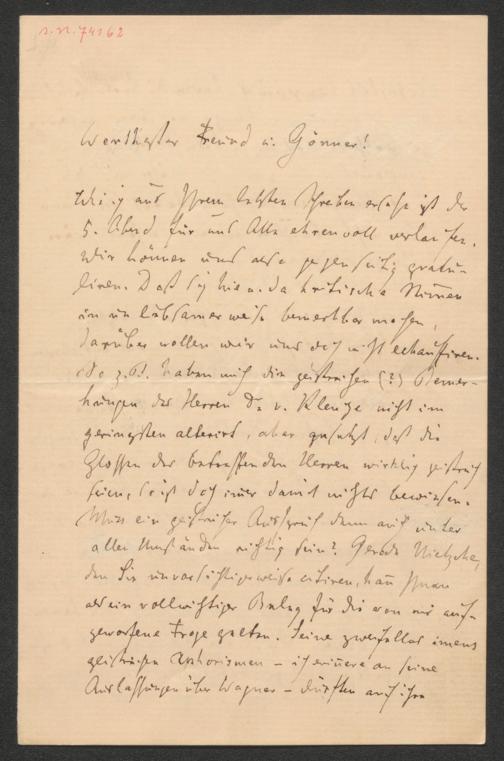 n. N. 74162
Werthester Freund u. Gönner!
Wie ich aus Ihrem letzten Schreiben ersehe ist der
5. Abend für uns Alle ehrenvoll verlaufen.
Wir können uns also gegenseitig gratu-
liren. Daß sich hie u. da kritische Stimmen
in unliebsamer weise bemerkbar machen,
darüber wollen wir uns doch nicht echauffiren.
So z.B. haben mich die geistreichen (?) Bemer-
kungen des Herren Dr. v. Klenze nicht im
geringsten alterirt, aber gesetzt, daß die
Glossen des betreffenden Herren wirklich geistreich
seien, so ist doch immer damit nichts bewiesen.
Muss ein geistreicher Ausspruch denn auch unter
allen Umständen richtig sein? Gerade Nietzsche,
den Sie unvorsichtigerweise citiren, kann Ihnen
als ein vollwichtiger Beleg für die von mir auf-
geworfene Frage gelten. Seine zweifellos imens
geistreichen Aphorismen – ich erinnere an seine
Auslassungen über Wagner – dürften auch ihre